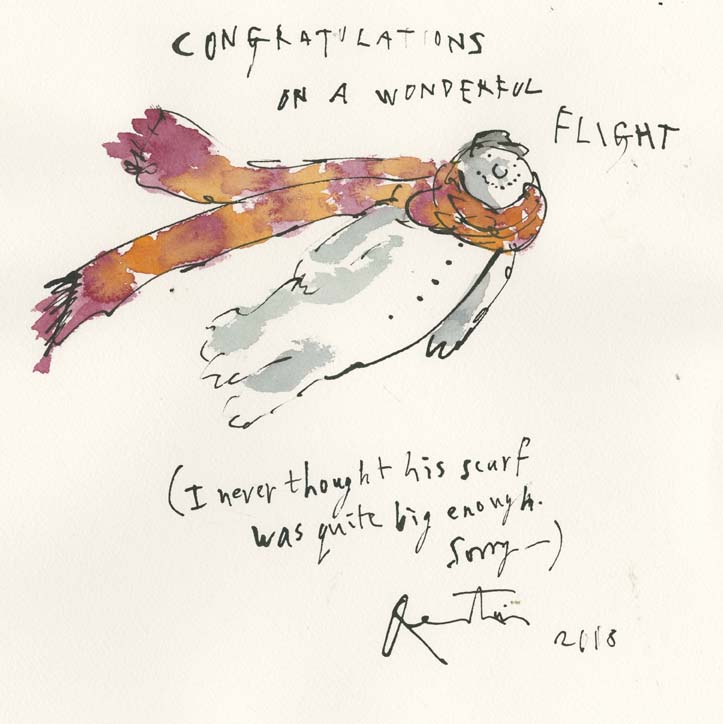 CONGRATULATIONS
ON A WONDERFUL
FLIGHT
(I never thought his scarf
was quite big enough.
Sorry —)
2018